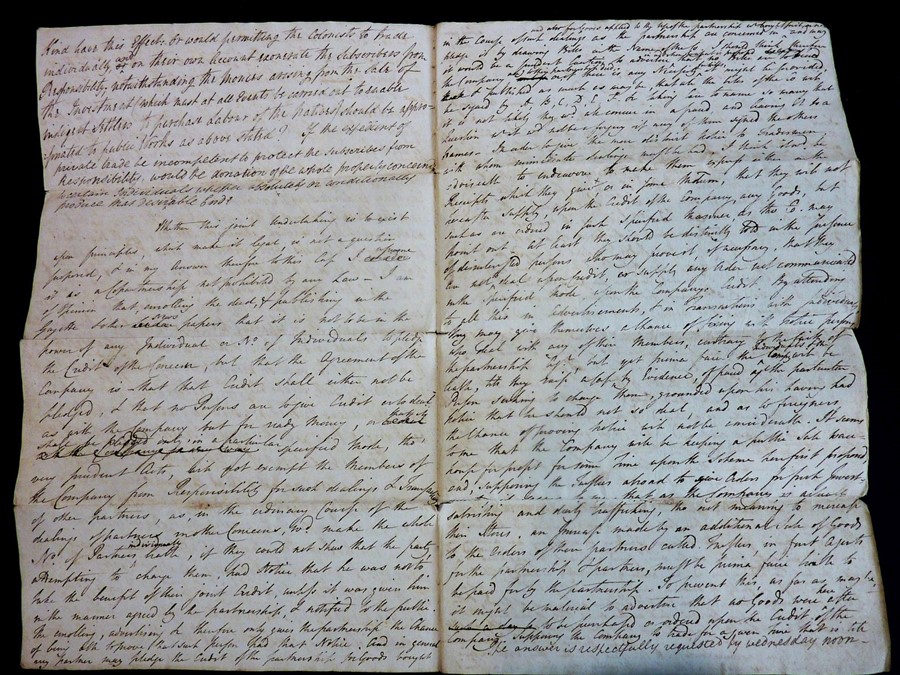 Kind have this Effect. Or would permitting the Colonists to trade
individually and on their own Account exonerate the Subscribers from
Responsibility notwithstanding the monies arising from the Sale of
the Investment (which must at all Events be carried out to enable
indigent Settlers to purchase Labour of the Natives) should be appro-
priated to public Works as above stated? If the expedient of
private trade be incompetent to protect the Subscribers from
Responsibility, would be donation of the whole property concerned
to certain Individuals whether absolutely or conditionally
produce this desirable Good?
Whether this joint Undertaking is to exist
upon principles which make it legal, is not a question
proposed, & in my Answer therefore to this Case I assume
it is a Copartnership not prohibited by any Law – I am
of Opinion that enrolling the deed, & publishing in the
Gazette & other news papers that it is not to be in the
power of any Individual or No. of Individuals to pledge
the Credit of the Concern, but that the Agreement of the
Company is that that Credit shall either not be
pledged, & that no Persons are to give Credit or to deal
with the Company but for ready Money, or
only in a particular specified Mode, tho
very prudent Acts, will not exempt the Members of
the Company from Responsibility for such dealings & Transactions
of other partners, as, in the ordinary Course of the
dealings of partners in other Concerns, wd. make the whole
No. of Partners liable, if they could not shew that the party
attempting to charge them, had Notice that he was not to
take the benefit of their joint Credit, unless it was given him
in the manner agreed by the partnership & notified to the public.
The enrolling, advertising &c therefore only gives the partnership the Chance
of being able to prove that such person had that Notice. And in general
any partner may pledge the Credit of the partnership for Goods bought
and also for Goods applied to the use of the partnership so bought
in the Course of such dealings as the partnership are concerned in, and may
pledge it by drawing Bills in the Name of the
it would be a prudent Caution to advertise that no Bills
the Company
published as much as may be, that all the Bills of the Co. will
be signed by A, B, C, D, E, F, or taking in so many that
it is not likely they wd. all concur in a fraud and leaving it to a
Question wh. wd. not be a forgery if any of them signed the others
names. In order to give the more distinct notice to Tradesmen
with whom immediate dealings may be had, I think it wd. be
adviseable to endeavour to make them express either in the
Receipts which they give or in some Mation, that they will not
hereafter supply, upon the Credit of the Company, any Goods, but
such as are ordered in such specified manner as the Co. may
point out – at least they should be distinctly told in the presence
of disinterested persons who may prove it, if necessary, that they
are not to deal upon Credit or supply any Order not communicated
in the specified mode upon the Company's Credit. By attending
to all this in advertisements, & in Transactions with individuals
they may give themselves a chance of fixing with Notice persons
who deal with any of their Members, contrary to the Articles of
the partnership &c, but yet prima facie the Company will be
liable till they raise a case by Evidence, of proof agt. the particular
Person seeking to charge them, grounded upon his having had
Notice that he should not so deal, and as to foreigners
the Chance of proving Notice will not be considerable. It seems
to me that the Company will be keeping a public Sale ware-
house for profit for some Time upon the Scheme here first proposed
and, supposing the Trustees abroad to give Orders for fresh Invest-
that as the Company is always
subsisting and daily trafficking, tho not meaning to increase
their Stores, an Increase made by an additional Sale of Goods
to the Orders of their partners called Trustees, in fact Agents
for the partnership & partners, must be prima facie liable to
be paid for by the partnership. To prevent this, as far as may be,
it might be material to advertise that no Goods were after
to be purchased or ordered upon the Credit of the
Company, supposing the Company to trade for a given time that so
The answer is respectfully requested by Wednesday noon